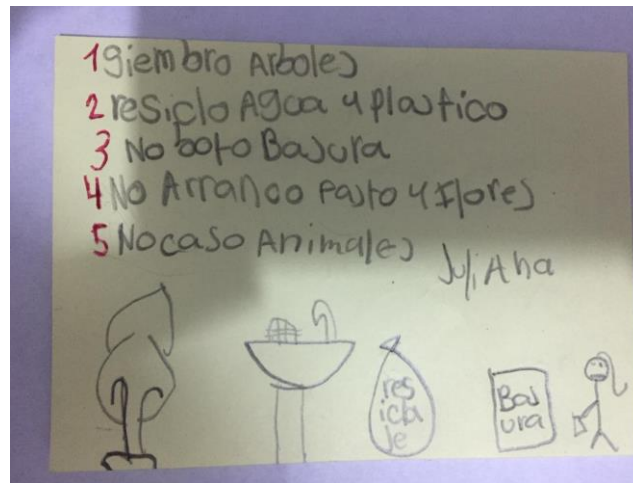 1 Siembro Arboles
2 resiclo Agua y plastico
3 No boto Basura
4 No Arranco pasto y Flores
5 No caso Animales
JuliAna
res
icla
je
Bas
ura